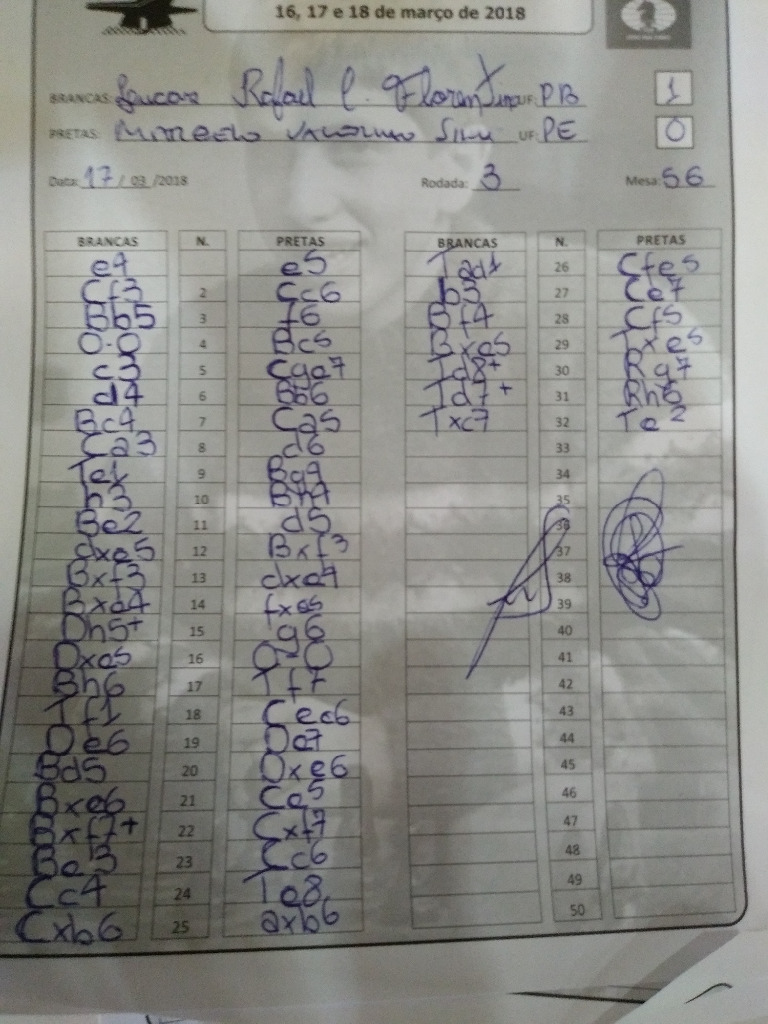 16, 17 e 18 de março de 2018
BRANCAS: Rafael C. Florentino UF: PB 1
PRETAS: UF: PE 0
Data: 17 / 03 /2018 Rodada: 3 Mesa: 56
BRANCAS N. PRETAS BRANCAS N. PRETAS
e4 e5 Tad1 26 Cfe5
Cf3 2 Cc6 b3 27 Ce7
Bb5 3 f6 Bf4 28 Cf5
O-O 4 Bc5 Bxe5 29 Txe5
c3 5 Cge7 Td8+ 30 Rg7
d4 6 Bb6 Td7+ 31 Rh6
Bc4 7 Ca5 Txc7 32 Te2
Ca3 8 d6 33
Te1 9 Bg4 34
h3 10 Bh4 35
Be2 11 d5 36
dxe5 12 Bxf3 37
Bxf3 13 dxe4 38
Bxe4 14 fxe5 39
Dh5+ 15 g6 40
Dxe5 16 O-O 41
Bh6 17 Tf7 42
Tf1 18 Cec6 43
De6 19 De7 44
Bd5 20 Dxe6 45
Bxe6 21 Ce5 46
Bxf7+ 22 Cxf7 47
Be3 23 Cc6 48
Cc4 24 Te8 49
Cxb6 25 axb6 50